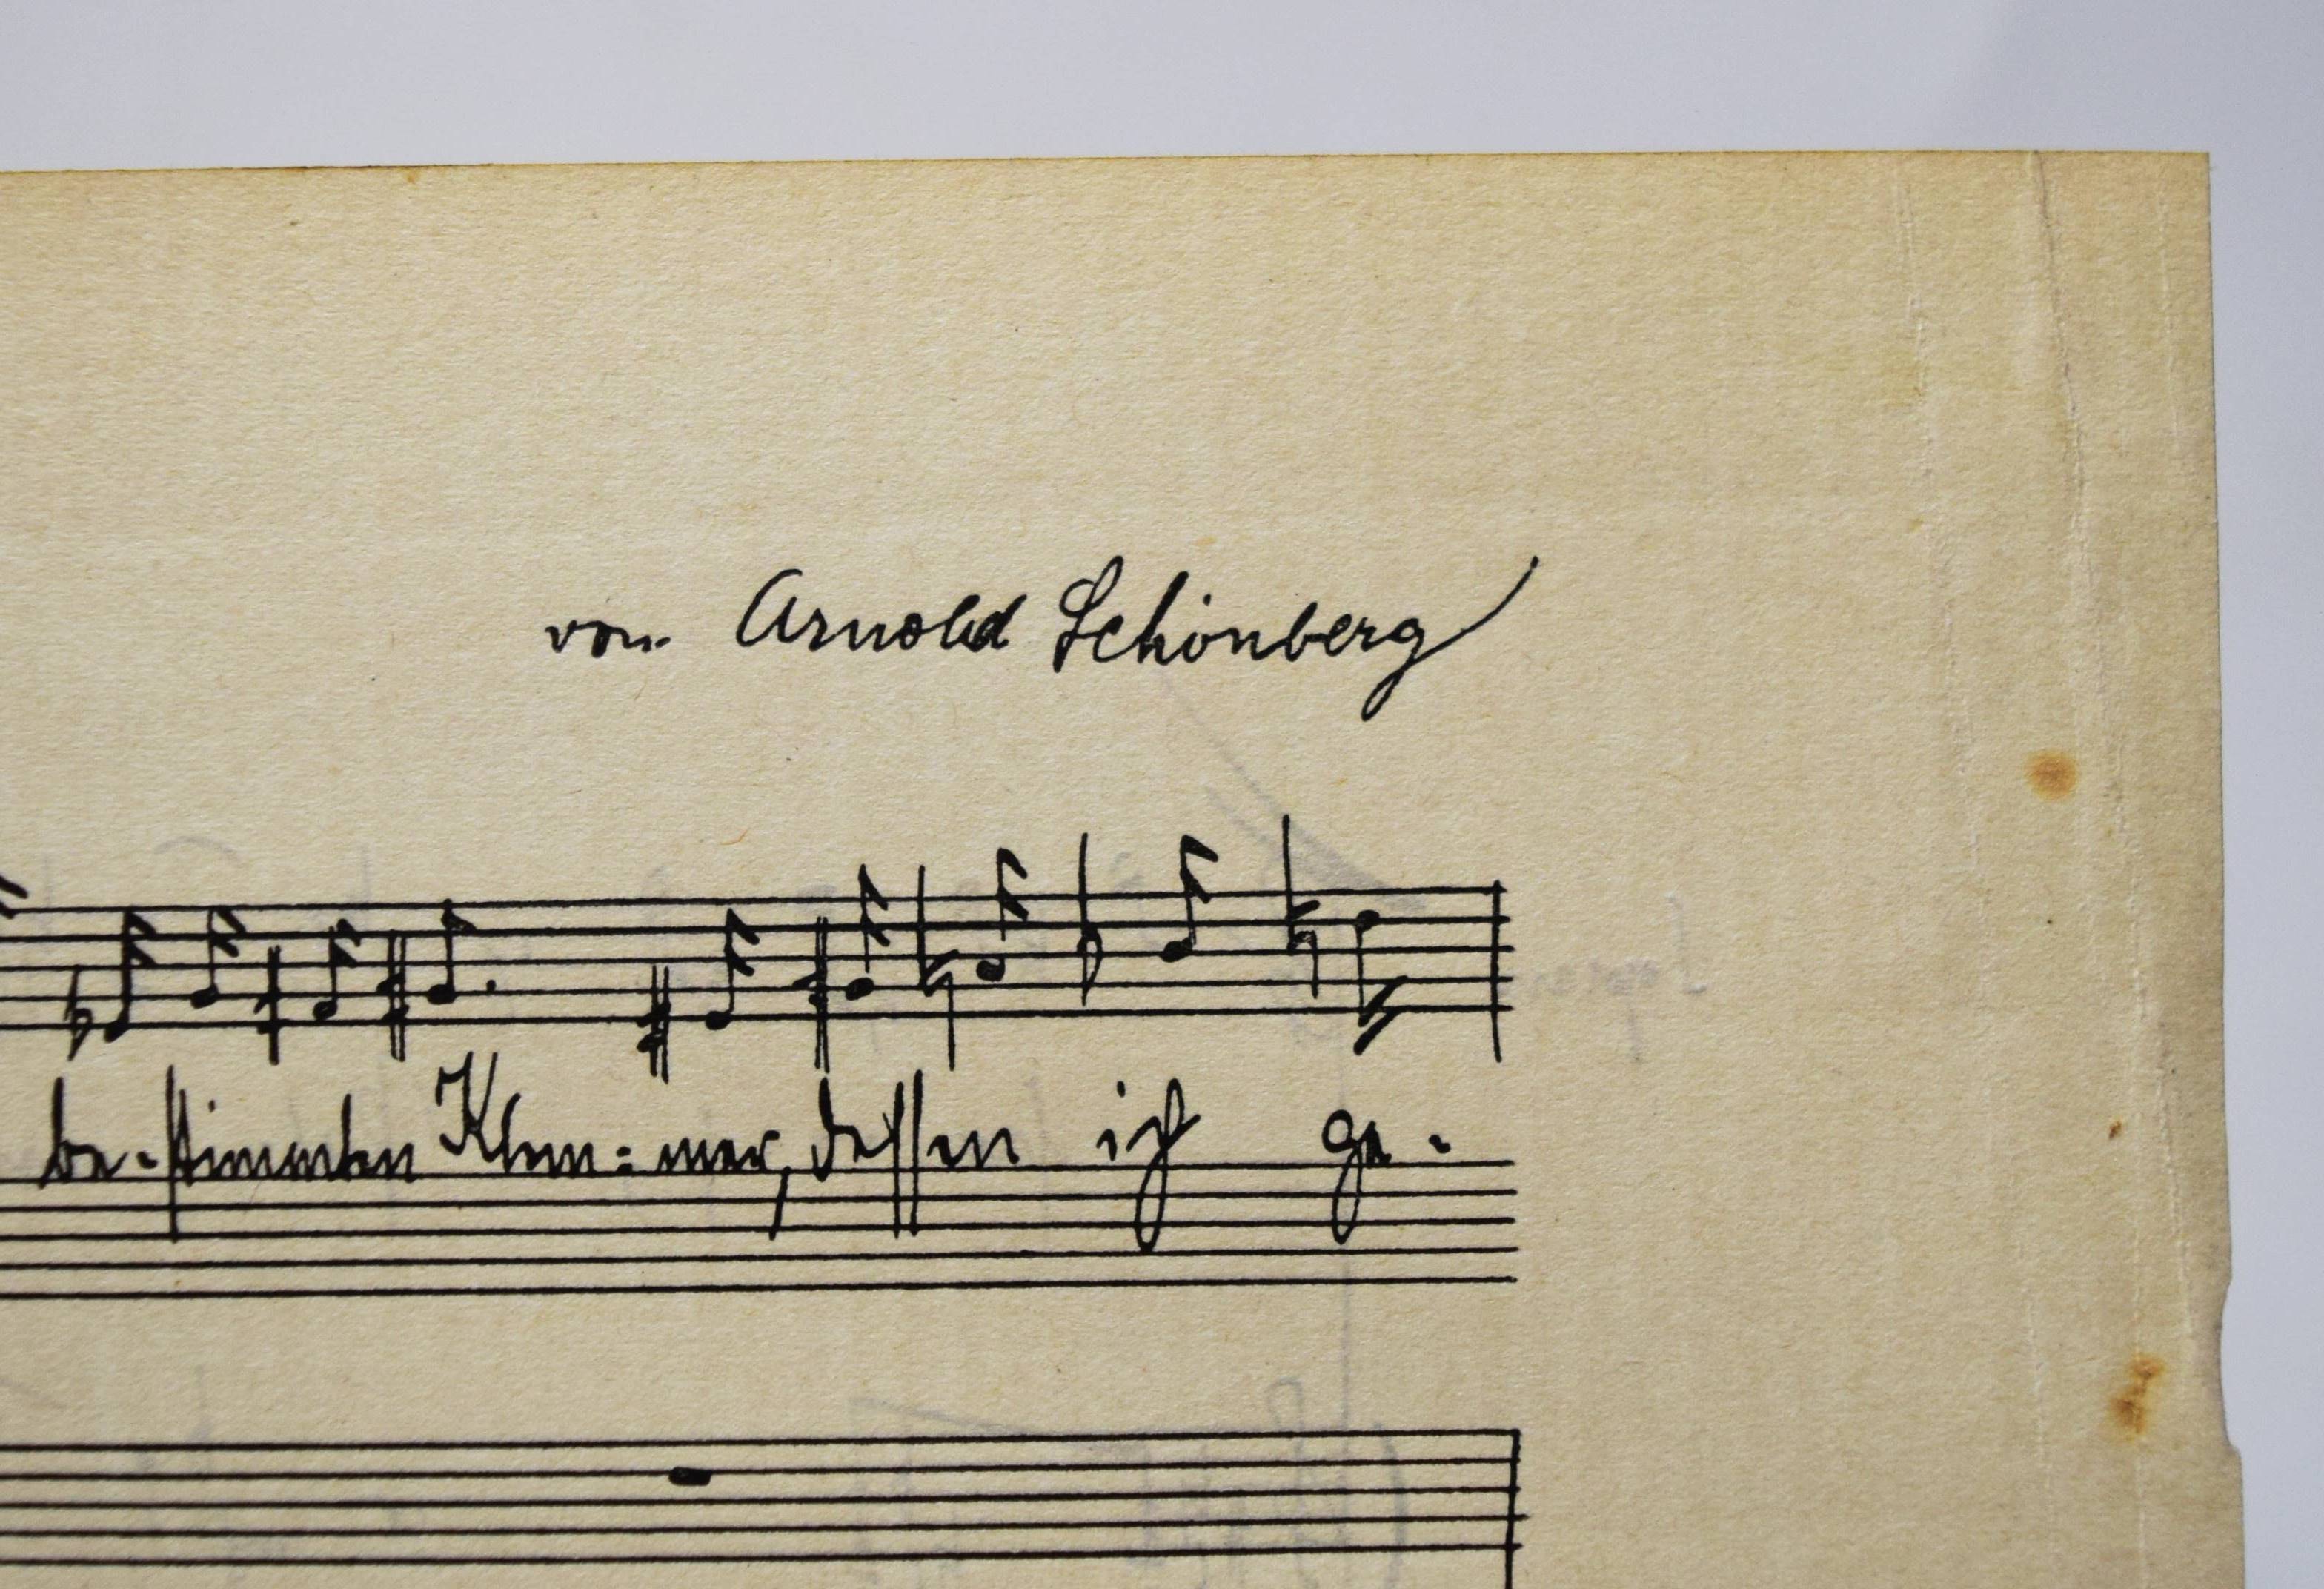 von Arnold Schönberg
be-stimmten Kum=mer, dessen ich ge-